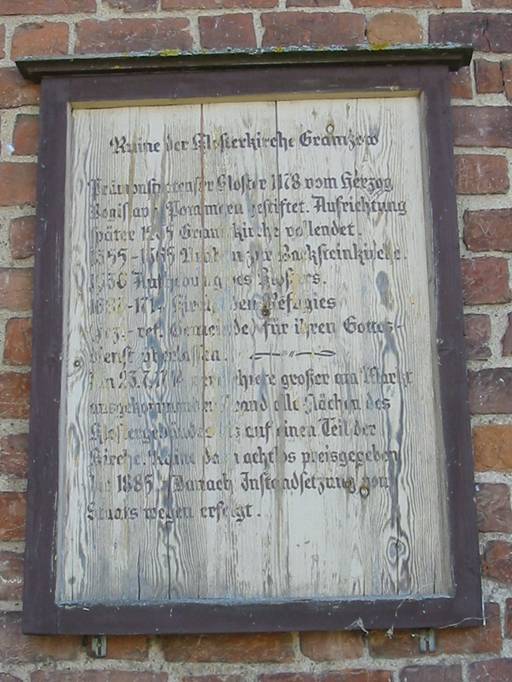 Ruine der Klosterkirche Gramzow
Prämonstratenser Kloster 1178 vom Herzog
Bogislav Pommern gestiftet. Aufrichtung
später Granitkirche vollendet.
1355-1365 zur Backsteinkirche.
Aufhebung des Klosters.
Kirche den Refugies
franz.-ref. Gemeinde für ihren Gottes-
dienst überlassen.
Am großer am Markt
ausgekommener Brand alle Dächer des
Klostergebäudes bis auf einen Teil der
Kirche. Ruine dann achtlos preisgegeben
bis 1885. Danach Instandsetzung von
Staats wegen erfolgt.